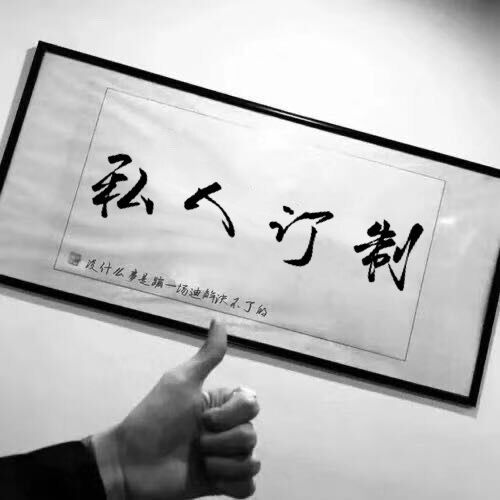 私人订制
没什么事是蹦一场迪解决不了的